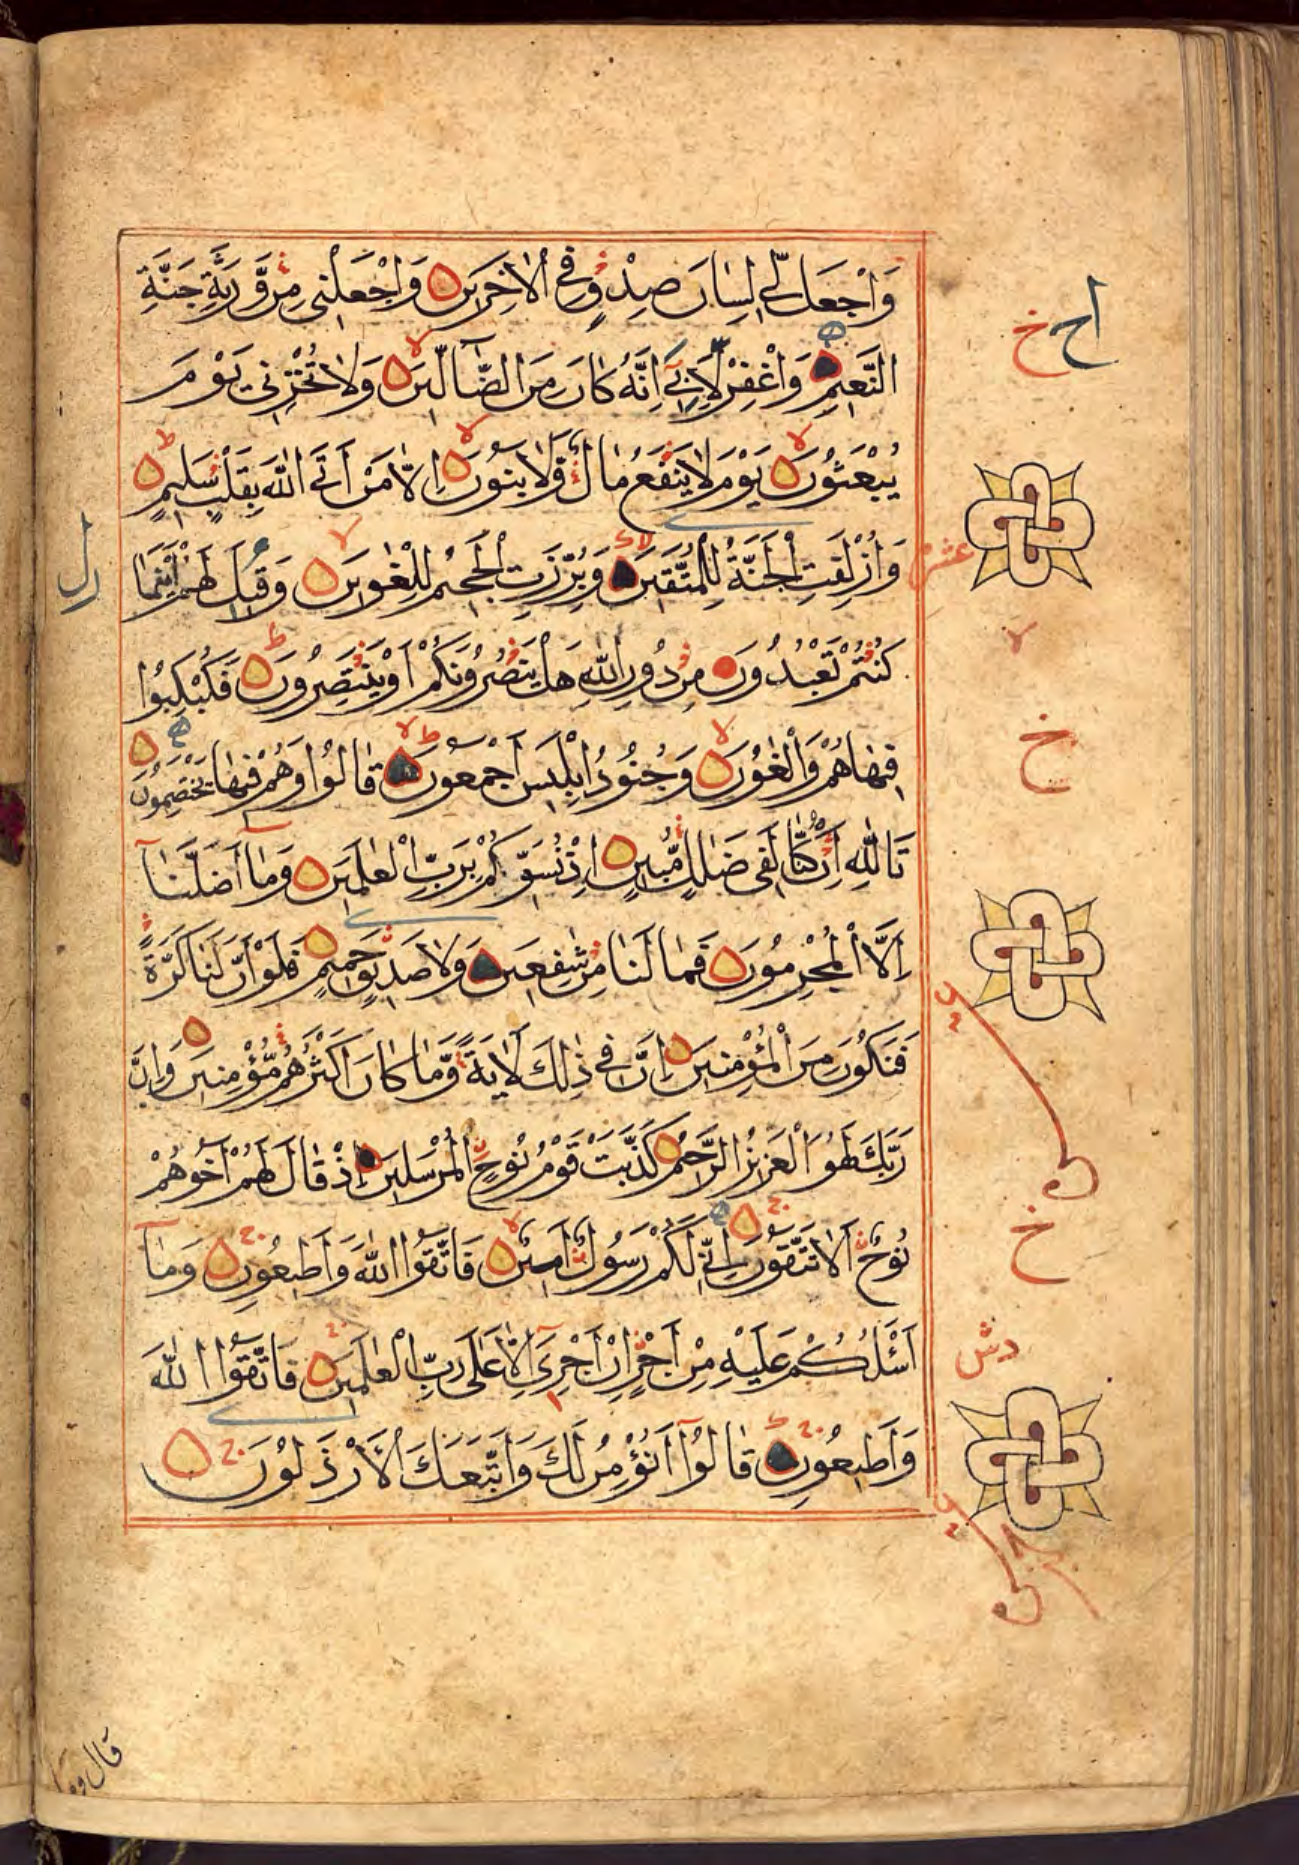 وَاجْعَل لِّي لِسَانَ صِدْقٍ فِي الْاٰخِرِينَ وَاجْعَلْنِي مِنْ وَّرَثَةِ جَنَّةِ
النَّعِيمِ وَاغْفِرْ لِاَبِيٓ اِنَّهُ كَانَ مِنَ الضَّآلِّينَ وَلَا تُخْزِنِي يَوْمَ
يُبْعَثُونَ يَوْمَ لَا يَنْفَعُ مَالٌ وَّلَا بَنُونَ اِلَّا مَنْ اَتَى اللّٰهَ بِقَلْبٍ سَلِيمٍ
وَاُزْلِفَتِ الْجَنَّةُ لِلْمُتَّقِينَ وَبُرِّزَتِ الْجَحِيمُ لِلْغٰوِينَ وَقِيلَ لَهُمْ اَيْنَمَا
كُنْتُمْ تَعْبُدُونَ مِنْ دُونِ اللّٰهِ هَلْ يَنْصُرُونَكُمْ اَوْ يَنْتَصِرُونَ فَكُبْكِبُوا
فِيهَا هُمْ وَالْغَاوٗنَ وَجُنُودُ اِبْلِيسَ اَجْمَعُونَ قَالُوا وَهُمْ فِيهَا يَخْتَصِمُونَ
تَاللّٰهِ اِنْ كُنَّا لَفِي ضَلٰلٍ مُّبِينٍ اِذْ نُسَوِّيكُمْ بِرَبِّ الْعٰلَمِينَ وَمَآ اَضَلَّنَآ
اِلَّا الْمُجْرِمُونَ فَمَا لَنَا مِنْ شٰفِعِينَ وَلَا صَدِيقٍ حَمِيمٍ فَلَوْ اَنَّ لَنَا كَرَّةً
فَنَكُونَ مِنَ الْمُؤْمِنِينَ اِنَّ فِي ذٰلِكَ لَاٰيَةً وَّمَا كَانَ اَكْثَرُهُمْ مُّؤْمِنِينَ وَاِنَّ
رَبَّكَ لَهُوَ الْعَزِيزُ الرَّحِيمُ كَذَّبَتْ قَوْمُ نُوحٍ الْمُرْسَلِينَ اِذْ قَالَ لَهُمْ اَخُوهُمْ
نُوحٌ اَلَا تَتَّقُونَ اِنِّي لَكُمْ رَسُولٌ اَمِينٌ فَاتَّقُوا اللّٰهَ وَاَطِيعُونِ وَمَآ
اَسْئَلُكُمْ عَلَيْهِ مِنْ اَجْرٍ اِنْ اَجْرِيَ اِلَّا عَلٰى رَبِّ الْعٰلَمِينَ فَاتَّقُوا اللّٰهَ
وَاَطِيعُونِ قَالُوٓا اَنُؤْمِنُ لَكَ وَاتَّبَعَكَ الْاَرْذَلُونَ
خ
عشر
خ
خ
قال وما